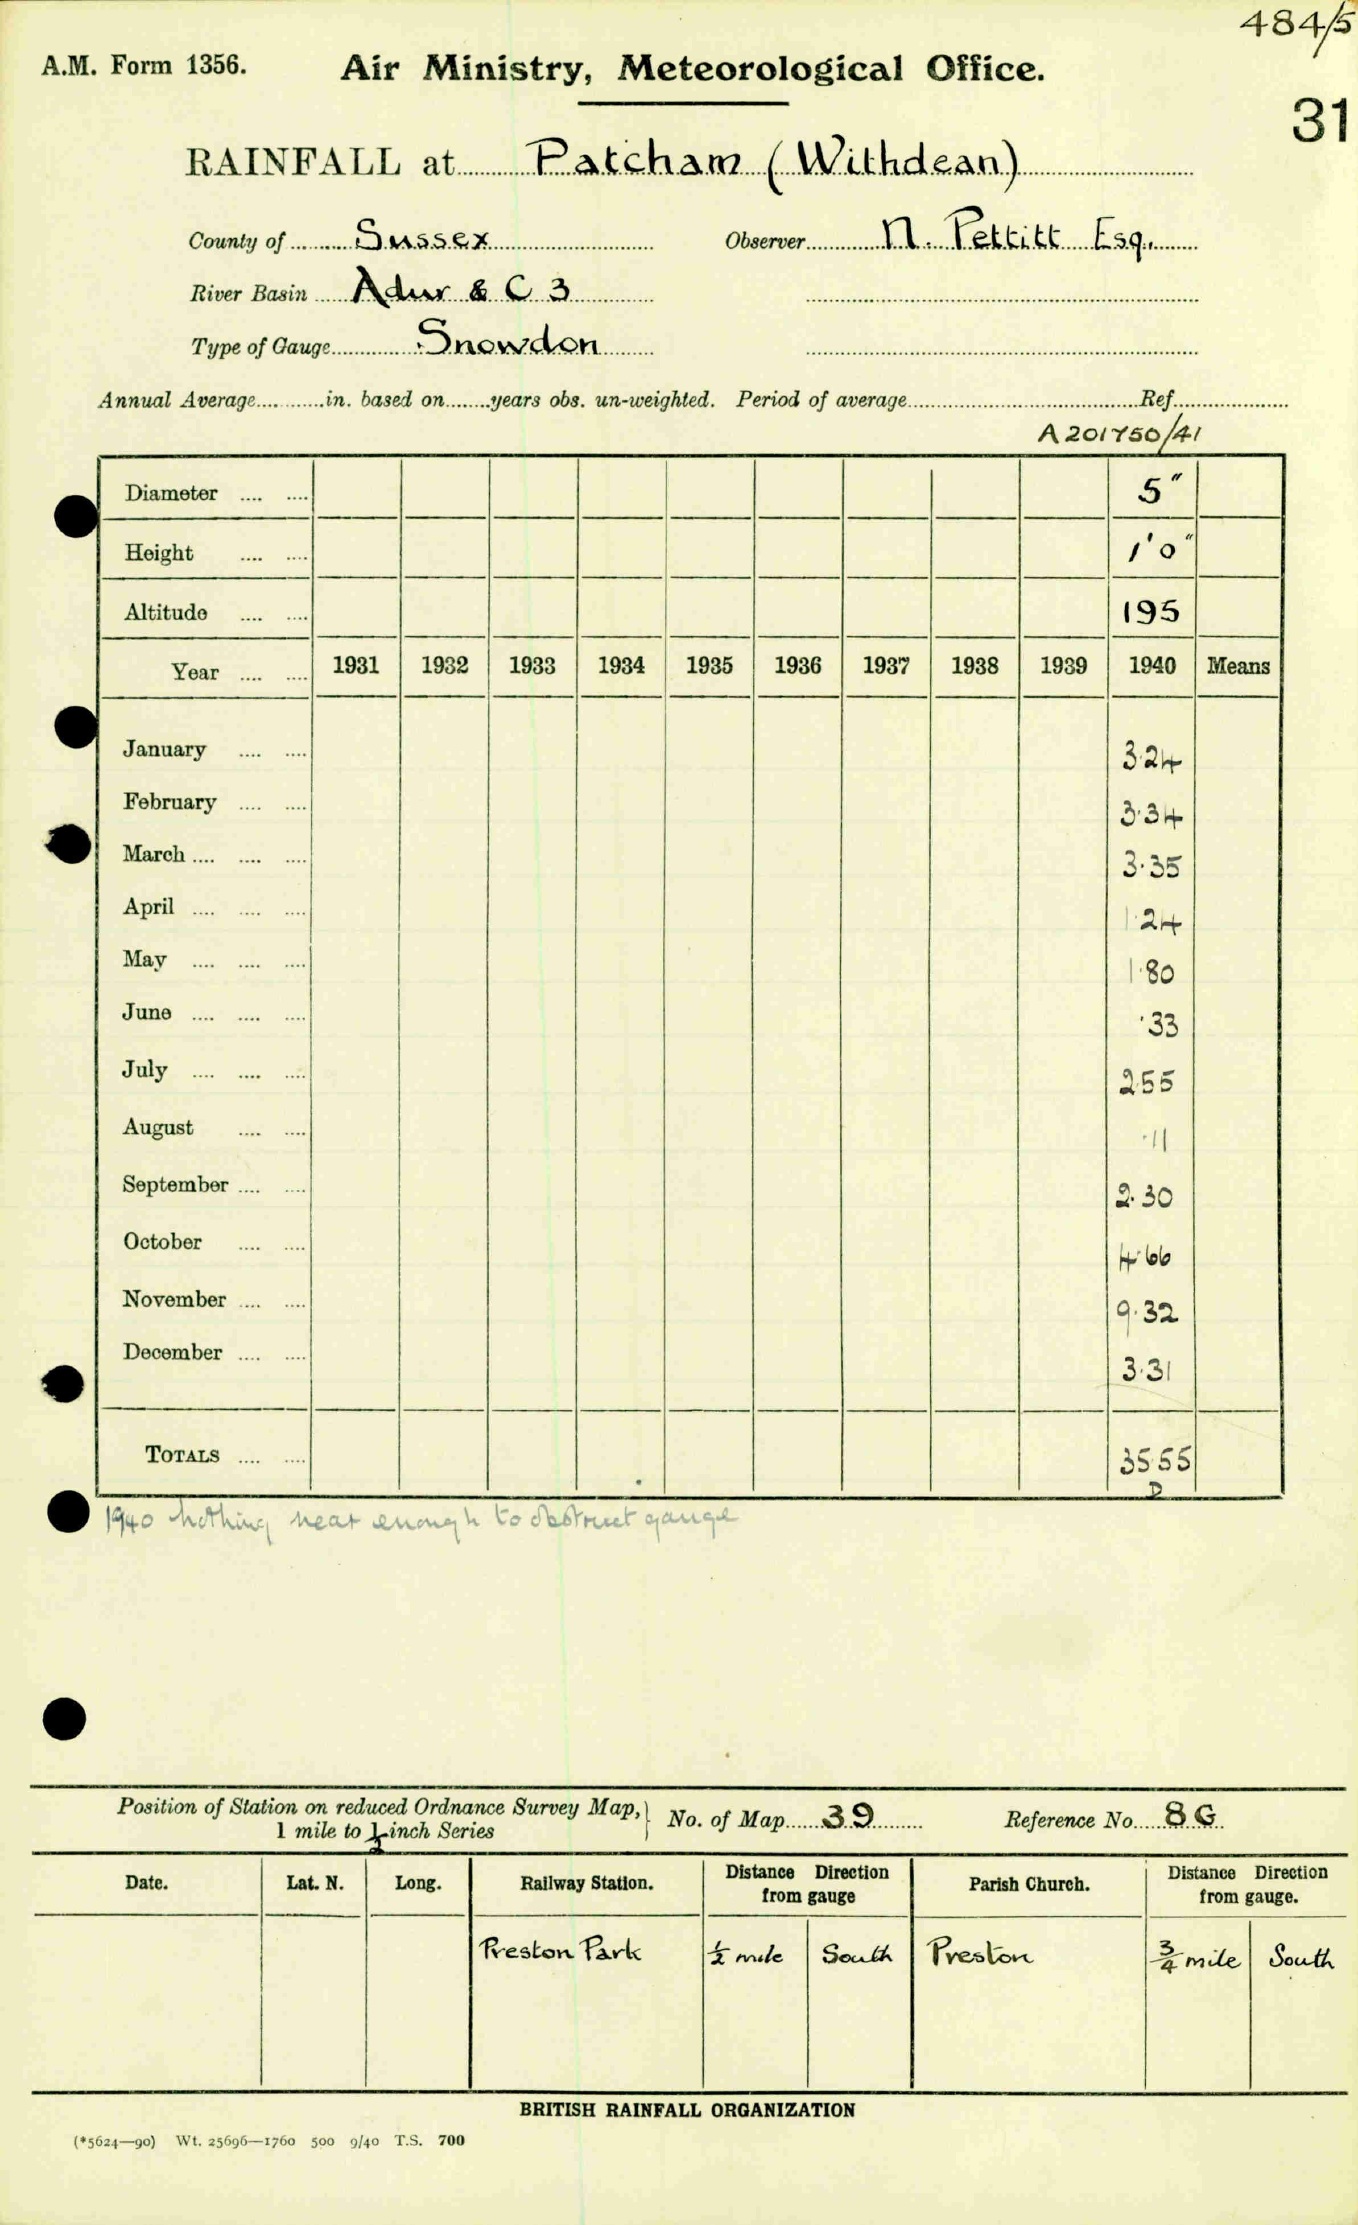 484/5
A.M. Form 1356. Air Ministry, Meteorological Office.
31
RAINFALL at Patcham (Withdean)
County of Sussex Observer N. Pettitt Esq.
River Basin Adur & C 3
Type of Gauge Snowdon
Annual Average............in. based on........years obs. un-weighted. Period of average........Ref........
A201750/41
Diameter .... .... 5"
Height .... .... 1'0"
Altitude .... .... 195
Year .... .... 1931 1932 1933 1934 1935 1936 1937 1938 1939 1940 Means
January .... .... 3.24
February .... .... 3.34
March .... .... .... 3.35
April .... .... .... 1.24
May .... .... .... 1.80
June .... .... .... .33
July .... .... .... 2.55
August .... .... .11
September .... .... 2.30
October .... .... 4.66
November .... .... 9.32
December .... .... 3.31
TOTALS .... .... 35.55
D
1940 Nothing near enough to obstruct gauge
Position of Station on reduced Ordnance Survey Map,} No. of Map 39 Reference No. 8G
1 mile to ½ inch Series
Date. Lat. N. Long. Railway Station. Distance Direction from gauge Parish Church. Distance Direction from gauge.
Preston Park ½ mile South Preston ¾ mile South
BRITISH RAINFALL ORGANIZATION
(*5624—90) Wt. 25696—1760 500 9/40 T.S. 700